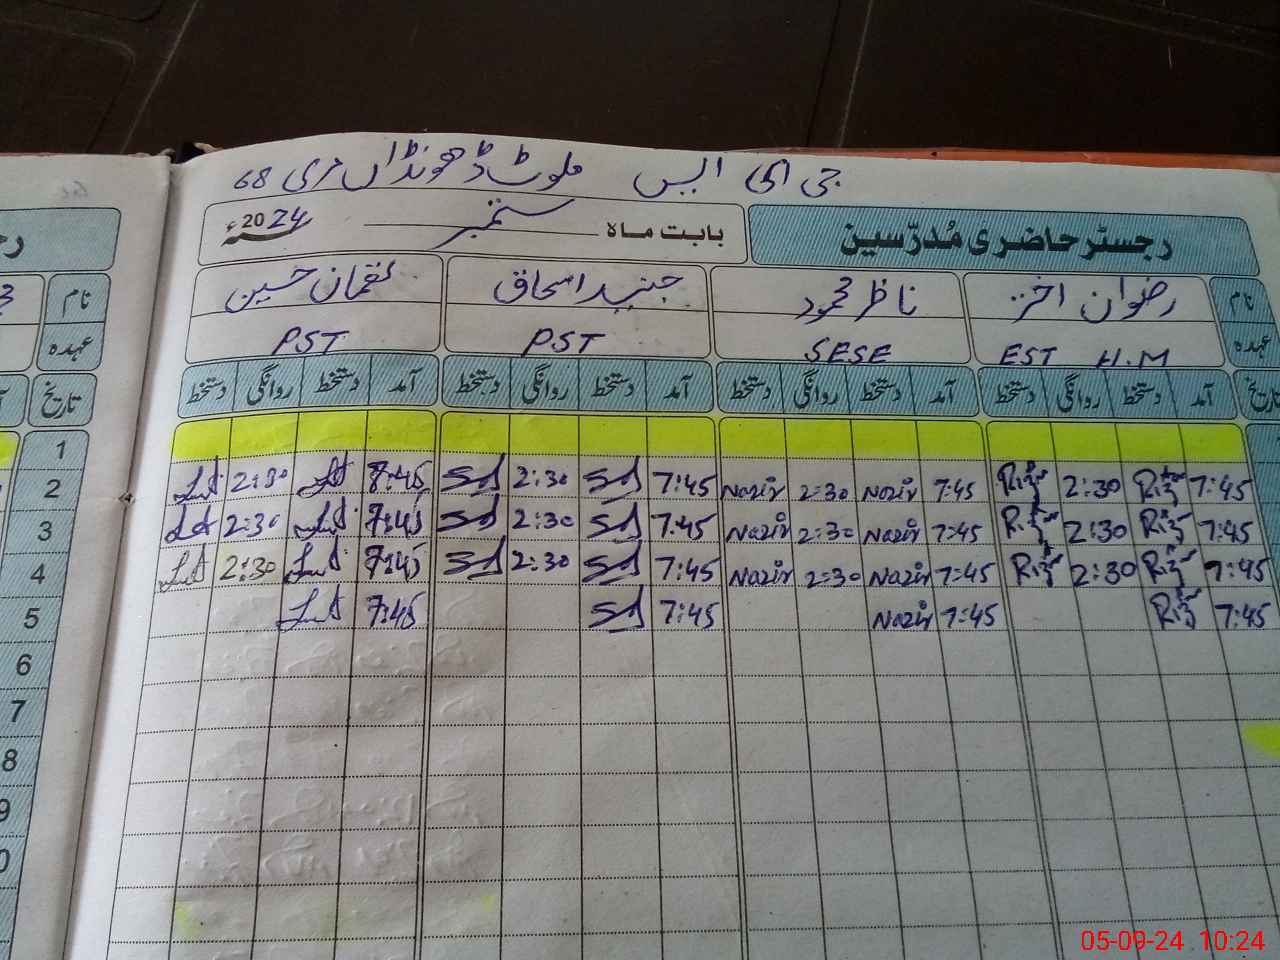 جی ای ایس ملوٹ ڈھونڈاں مری 68
رجسٹر حاضری مُدرّسین بابت ماہ ستمبر سنہ 2024ء
نام رضوان اختر ناظر محمود جنید اسحاق لقمان حسین نام
عہدہ EST H.M SESE PST PST عہدہ
تاریخ آمد دستخط روانگی دستخط آمد دستخط روانگی دستخط آمد دستخط روانگی دستخط آمد دستخط روانگی دستخط تاریخ
1
2 7:45 Riz 2:30 Riz 7:45 Nazir 2:30 Nazir 7:45 2:30 7:45 2:30
3 7:45 Riz 2:30 Riz 7:45 Nazir 2:30 Nazir 7:45 2:30 7:45 2:30
4 7:45 Riz 2:30 Riz 7:45 Nazir 2:30 Nazir 7:45 2:30 7:45 2:30
5 7:45 Riz 7:45 Nazir 7:45 7:45
6
7
8
9
05-09-24 10:24